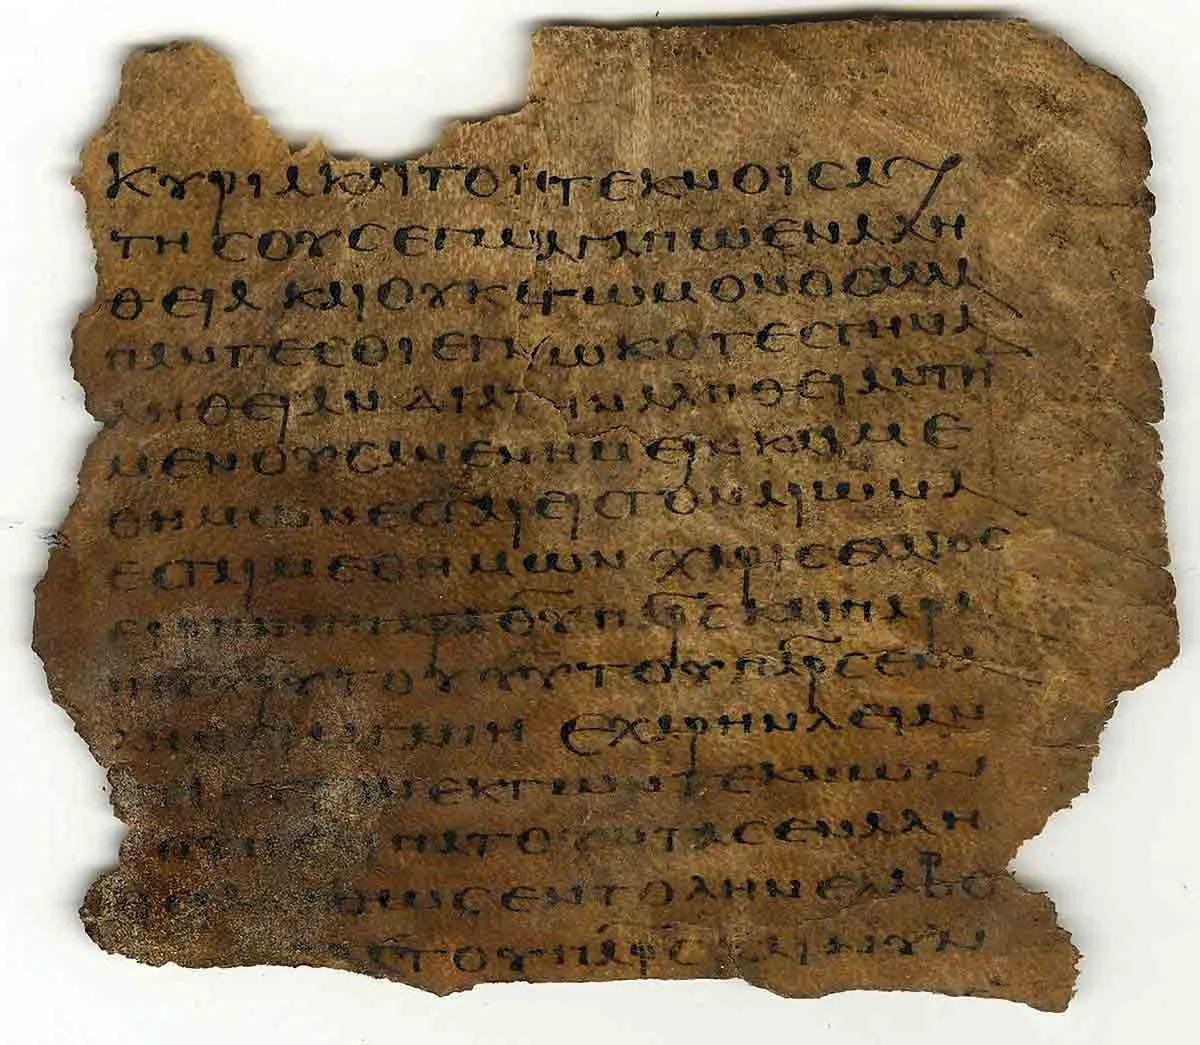 ΚΥΡΙΑ ΚΑΙ ΤΟΙϹ ΤΕΚΝΟΙϹ ΑΥ
ΤΗϹ ΟΥϹ ΕΓΩ ΑΓΑΠΩ ΕΝ ΑΛΗ
ΘΕΙΑ ΚΑΙ ΟΥΚ ΕΓΩ ΜΟΝΟϹ ΑΛΛΑ
ΠΑΝΤΕϹ ΟΙ ΕΓΝΩΚΟΤΕϹ ΤΗΝ Α
ΛΗΘΕΙΑΝ ΔΙΑ ΤΗΝ ΑΛΗΘΕΙΑΝ ΤΗ
ΜΕΝΟΥϹΑΝ ΕΝ ΗΜΕΙΝ ΚΑΙ ΜΕ
Θ ΗΜΩΝ ΕϹΤΑΙ ΕΙϹ ΤΟΝ ΑΙΩΝΑ
ΕϹΤΑΙ ΜΕΘ ΗΜΩΝ ΧΑΡΙϹ ΕΛΑΙΟϹ
ΕΙΡΗΝΗ ΠΑΡΑ Θ̅Υ̅ Π̅Ρ̅Ϲ̅ ΚΑΙ ΠΑΡΑ
ΤΟΥ Υ̅Υ̅ ΤΟΥ Π̅Α̅Ρ̅Ϲ̅ ΕΝ Α
ΑΓΑΠΗ ΕΧΑΡΗΝ ΛΕΙΑΝ
ΕΚ ΤΩΝ ΤΕΚΝΩΝ
ΠΑΤΟΥΝΤΑϹ ΕΝ ΑΛΗ
ΘΕΙΑ ΚΑΘΩϹ ΕΝΤΟΛΗΝ ΕΛΑΒΟ
ΤΟΥ Π̅Α̅Ρ̅Ϲ̅ ΚΑΙ ΝΥΝ